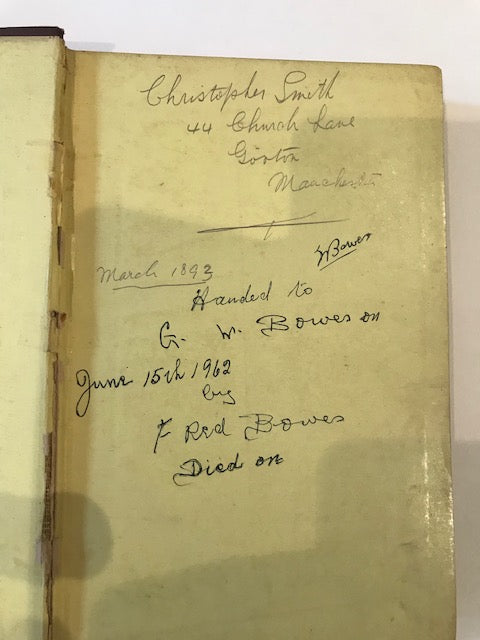 Christopher Smith
44 Church Lane
Gorton
Manchester
Bowes
March 1893
Handed to
G. W. Bowes on
June 15th 1962
by
F Red Bowes
Died on